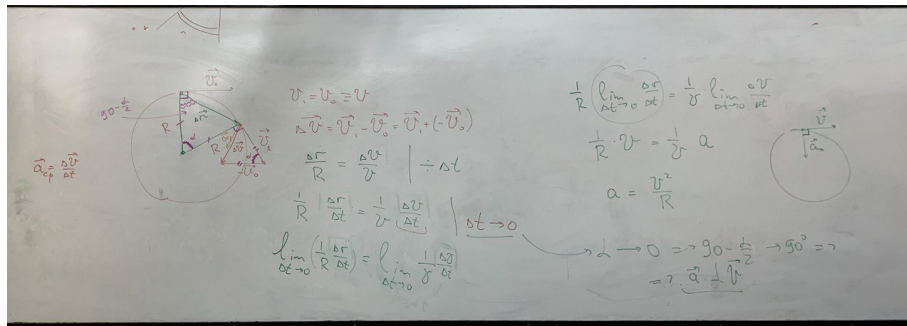 v⃗₀
90-α/2
Δr⃗
R
α
R
Δv⃗
v⃗₁
α
-v⃗₀
a⃗cp = Δv⃗/Δt
v₁ = v₀ ≡ v
Δv⃗ = v⃗₁ - v⃗₀ = v⃗₁ + (-v⃗₀)
Δr/R = Δv/v | ÷ Δt
1/R Δr/Δt = 1/v Δv/Δt | Δt → 0
lim Δt→0 (1/R Δr/Δt) = lim Δt→0 1/v Δv/Δt
1/R lim Δt→0 Δr/Δt = 1/v lim Δt→0 Δv/Δt
1/R · v = 1/v a
a = v²/R
→ α → 0 => 90 - α/2 → 90° =>
=> a⃗ ⊥ v⃗
v⃗